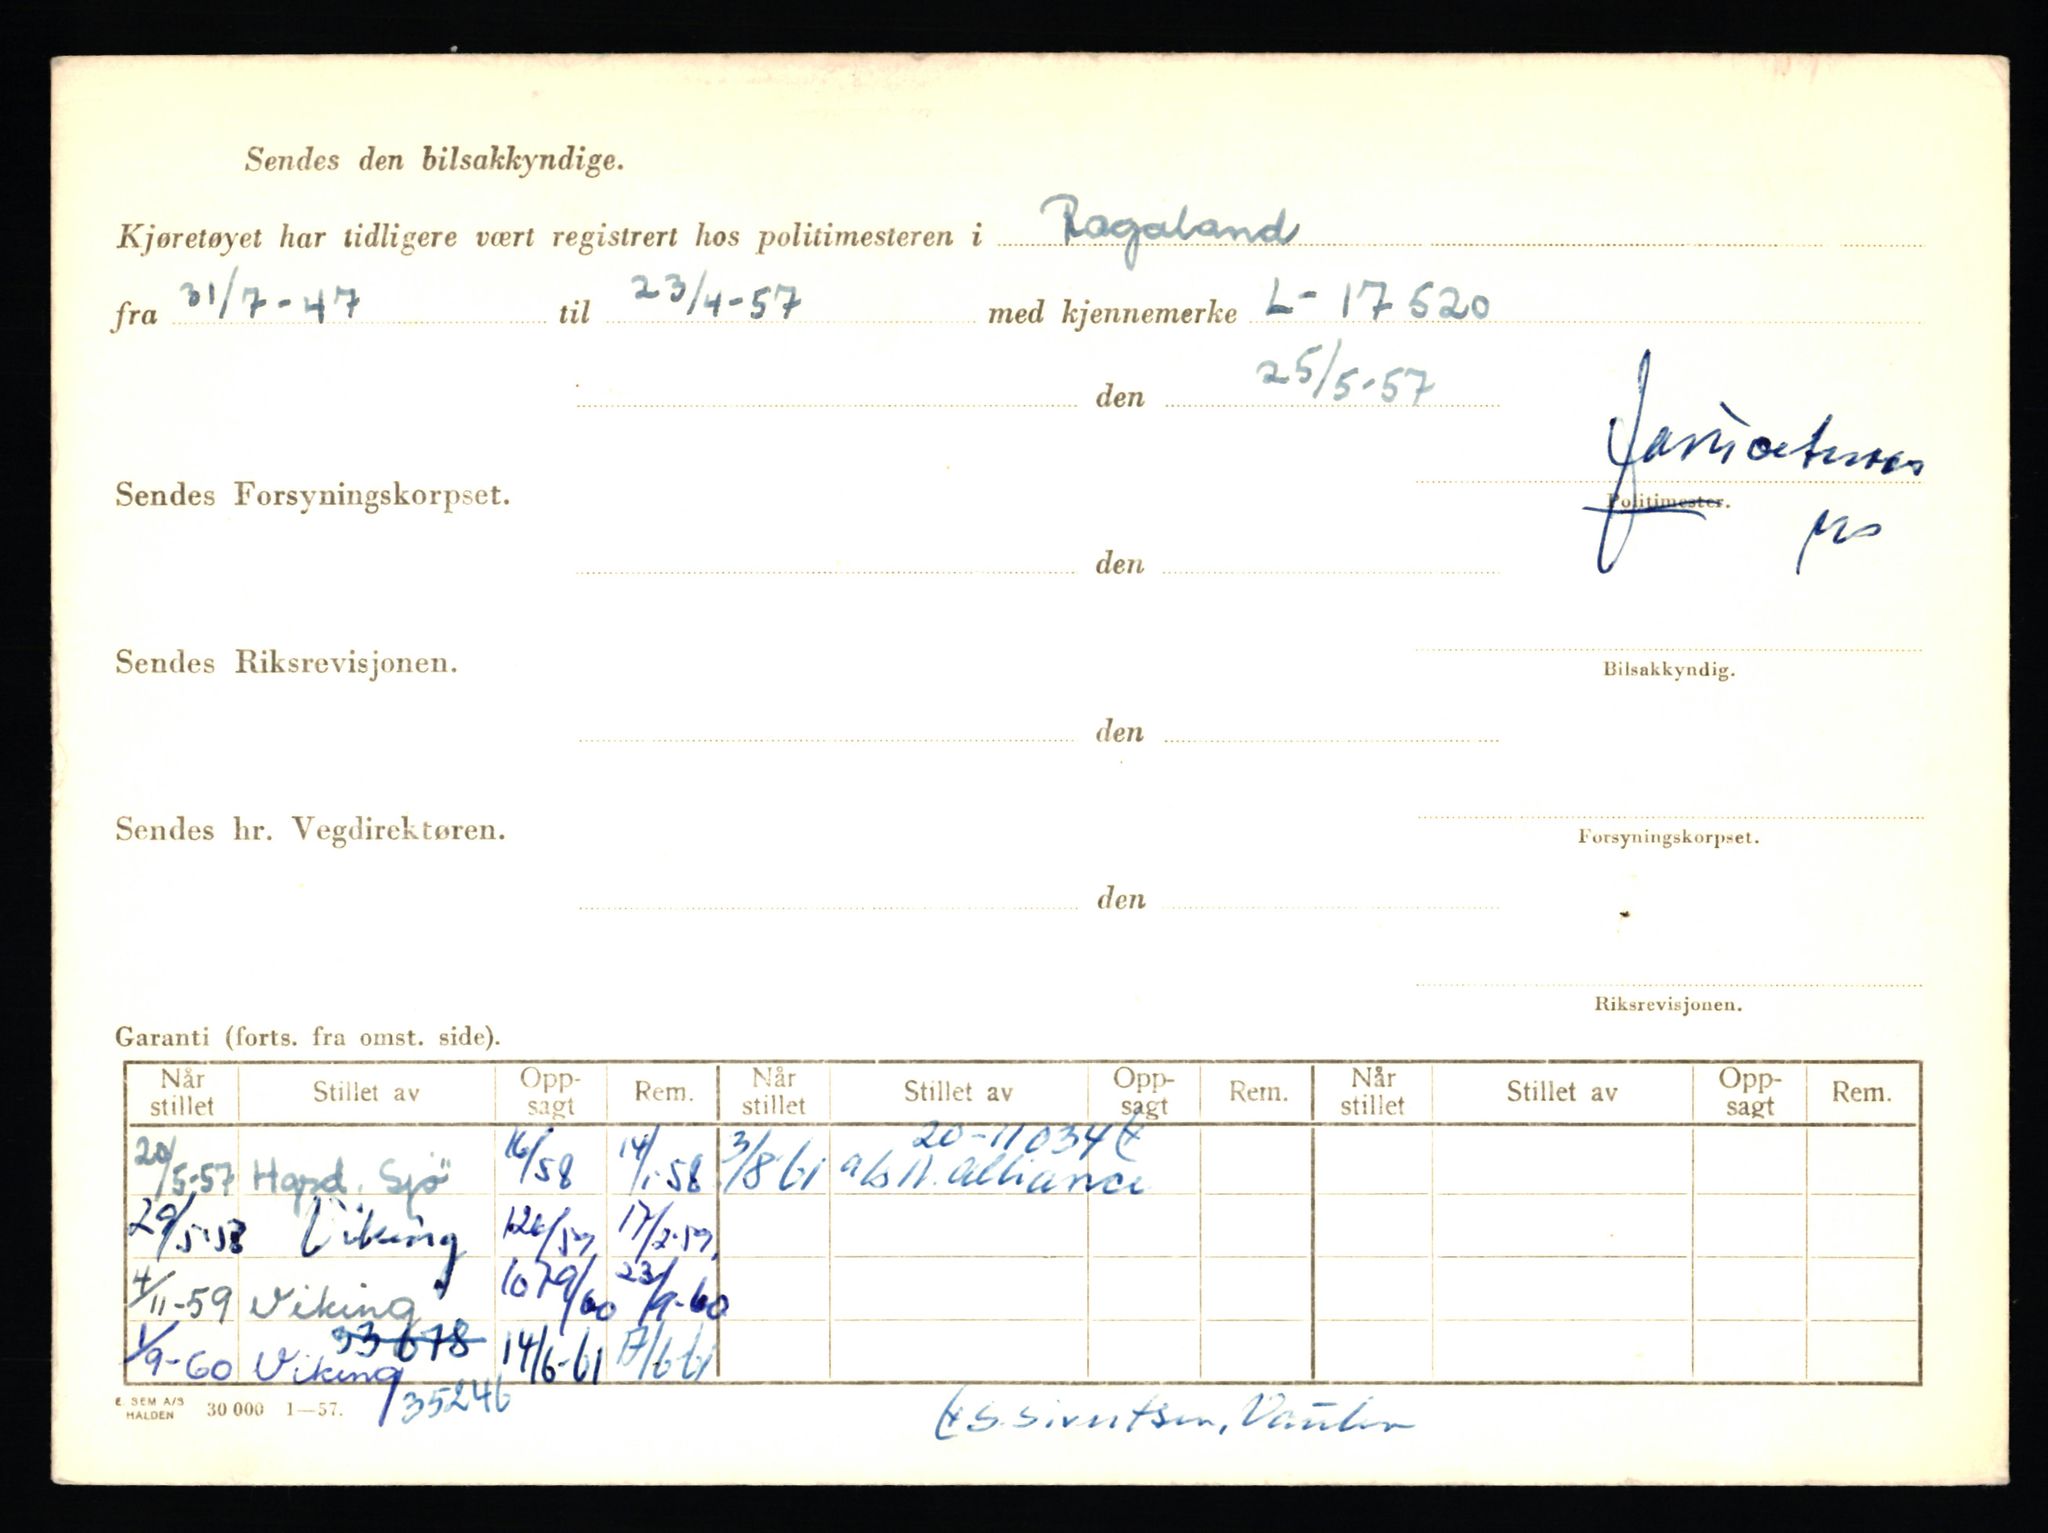 Sendes den bilsakkyndige.
Kjøretøyet har tidligere vært registrert hos politimesteren i Rogaland
fra 31/7-47 til 23/4-57 med kjennemerke L- 17520
den 25/5-57
Sendes Forsyningskorpset.
Politimester.
den
Sendes Riksrevisjonen.
Bilsakkyndig.
den
Sendes hr. Vegdirektøren.
Forsyningskorpset.
den
Riksrevisjonen.
Garanti (forts. fra omst. side).
Når stillet Stillet av Opp-sagt Rem. Når stillet Stillet av Opp-sagt Rem. Når stillet Stillet av Opp-sagt Rem.
20-11034
20/5-57 Hapd. Sjø 16/58 14/1-58 3/8 61 a/s N. Alliance
29/5-58 Viking 126/59 17/2-59
4/11-59 Viking 1079/60 23/9-60
33678
1/9-60 Viking 14/6-61 17/6-61
35246
E. SEM A/S
HALDEN 30 000 1—57.
S. Sivertsen,